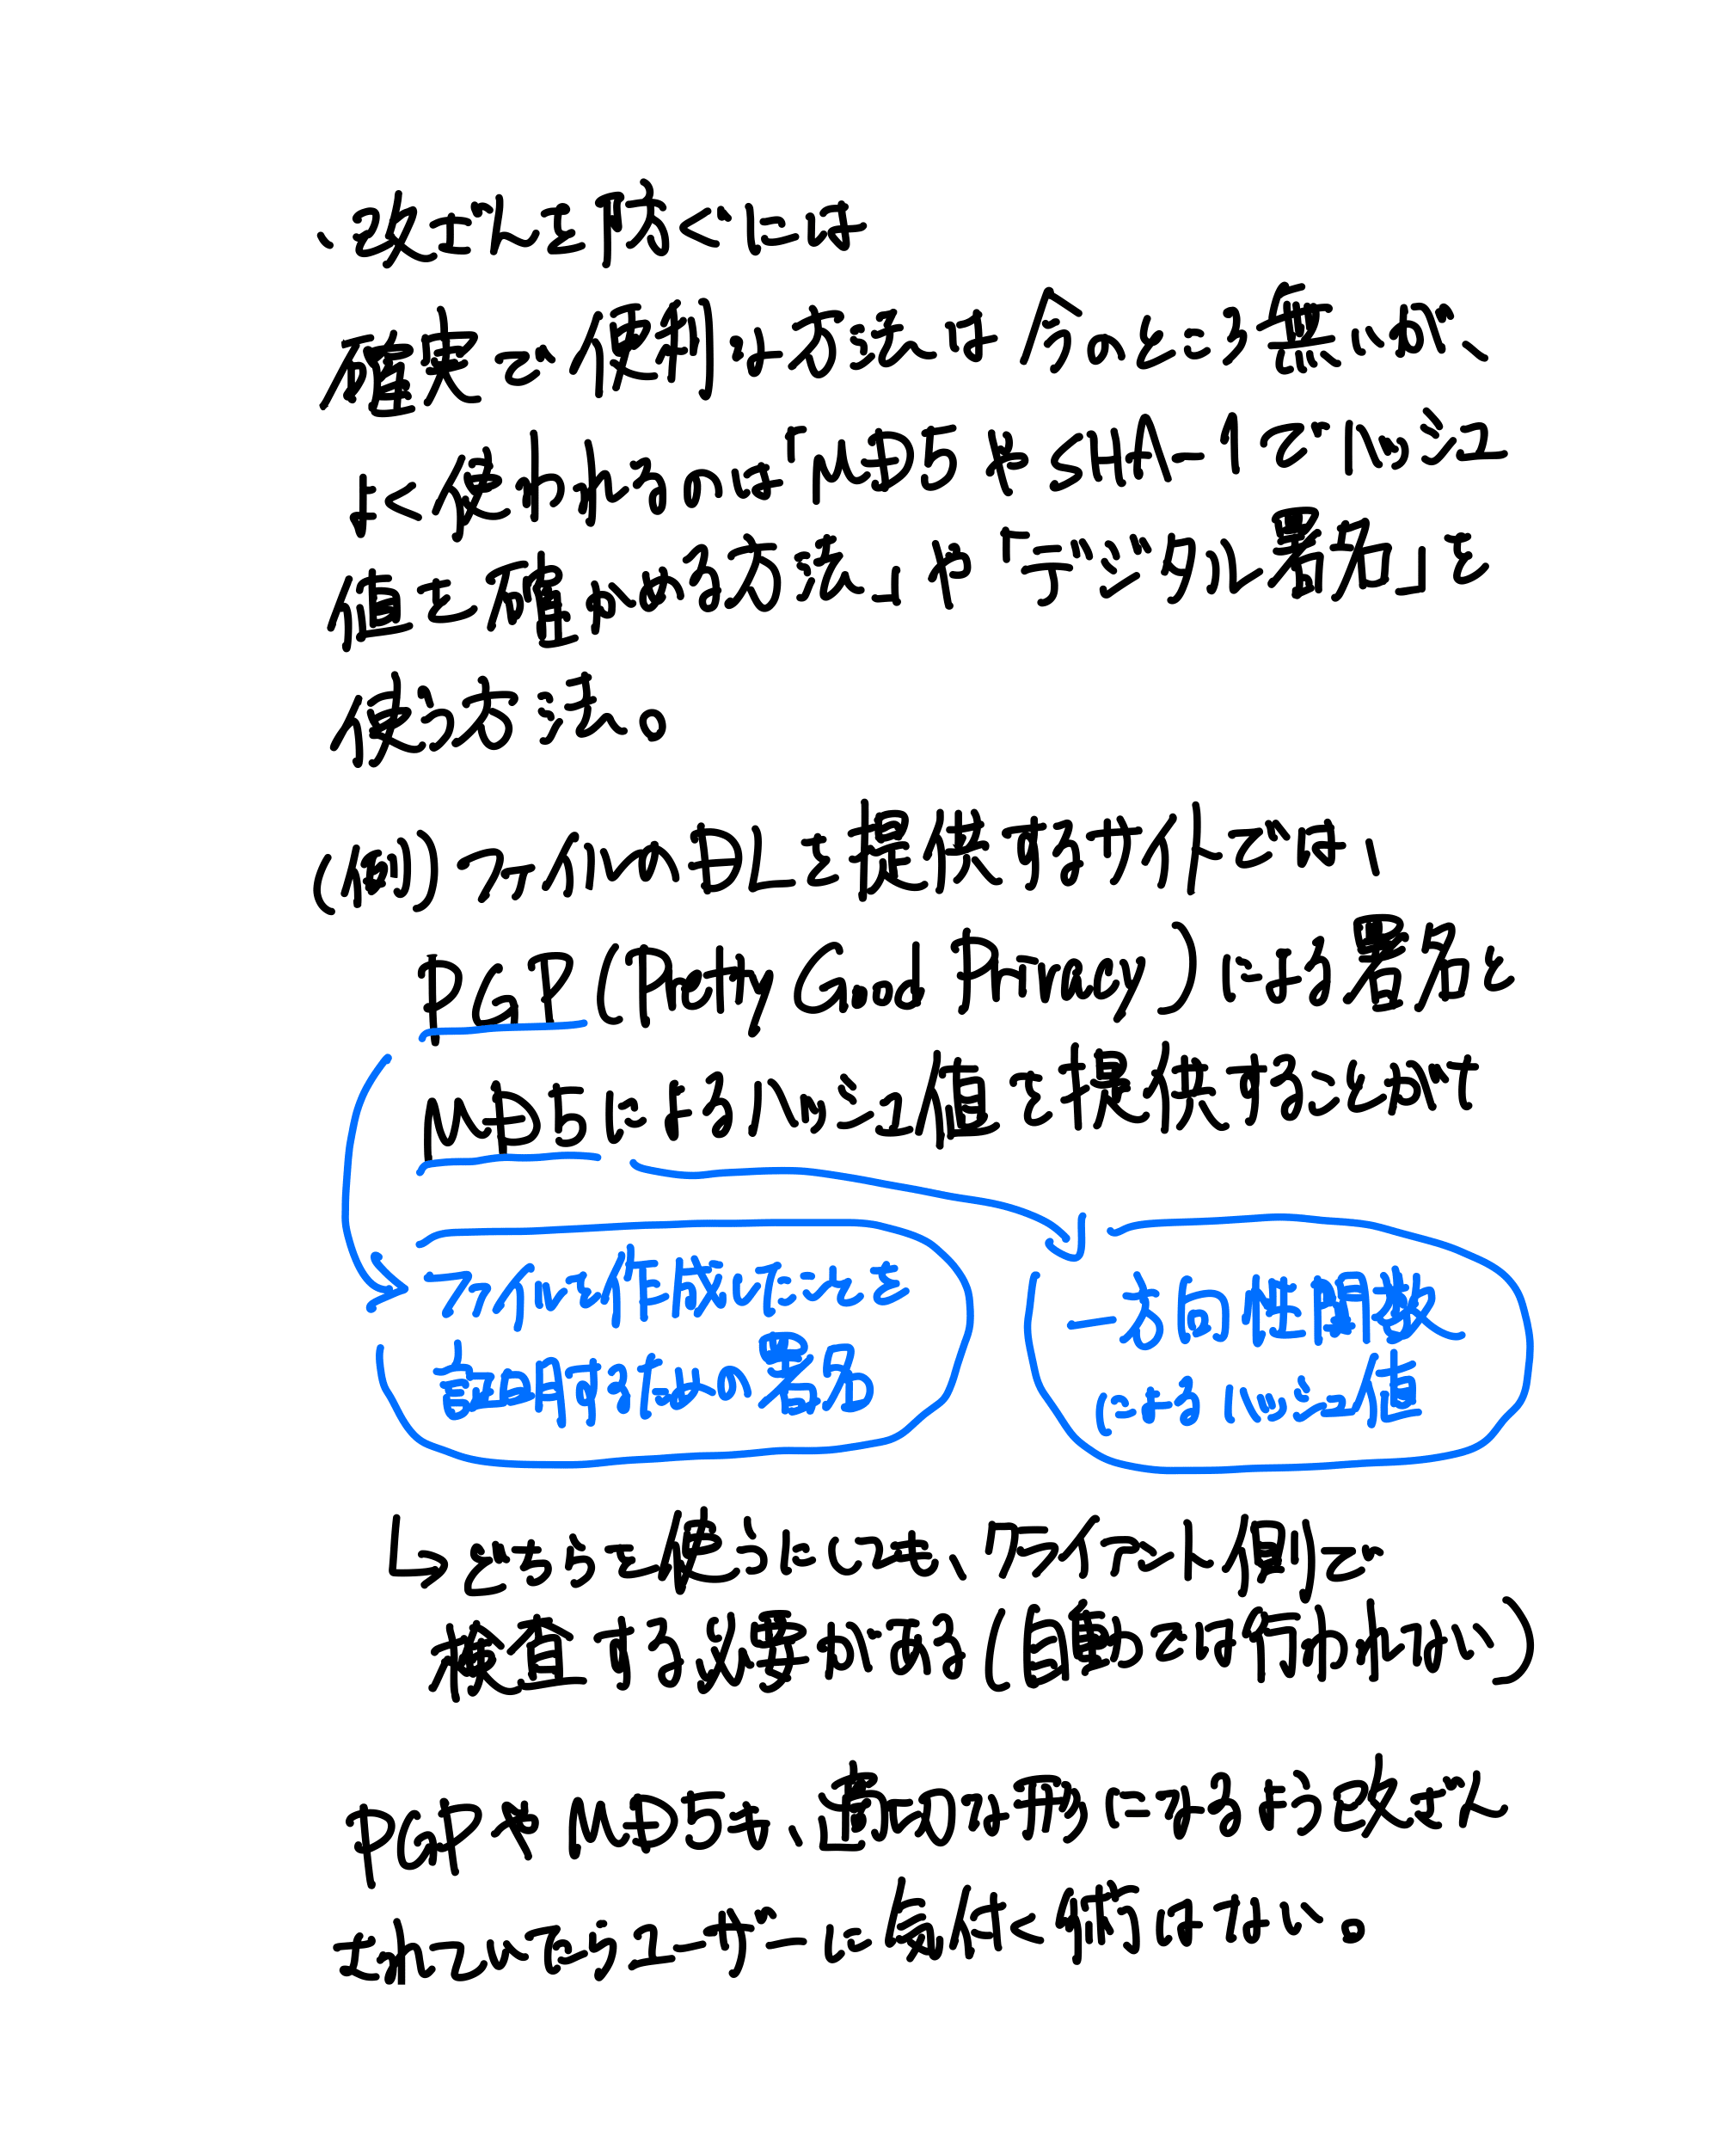 ・改ざんを防ぐには
確実で便利な方法は今のところ無いが、
よく使われるのは「MD5やSHA-1でハッシュ
値を確かめる方法」や「デジタル署名」を
使う方法。
(例)ファイルのDLを提供するサイトでは、
PGP(Pretty Good Privacy)による署名と
MD5によるハッシュ値を提供することがat
ファイルを作成したことを
証明するための署名
一方向性関数
によるハッシュ値
↳どちらを使うにしても、クライアント側で
検査する必要がある(自動では行われない)
PGPやMD5も、適切な形になるよう改ざん
されていたらユーザーに気付く術はない。